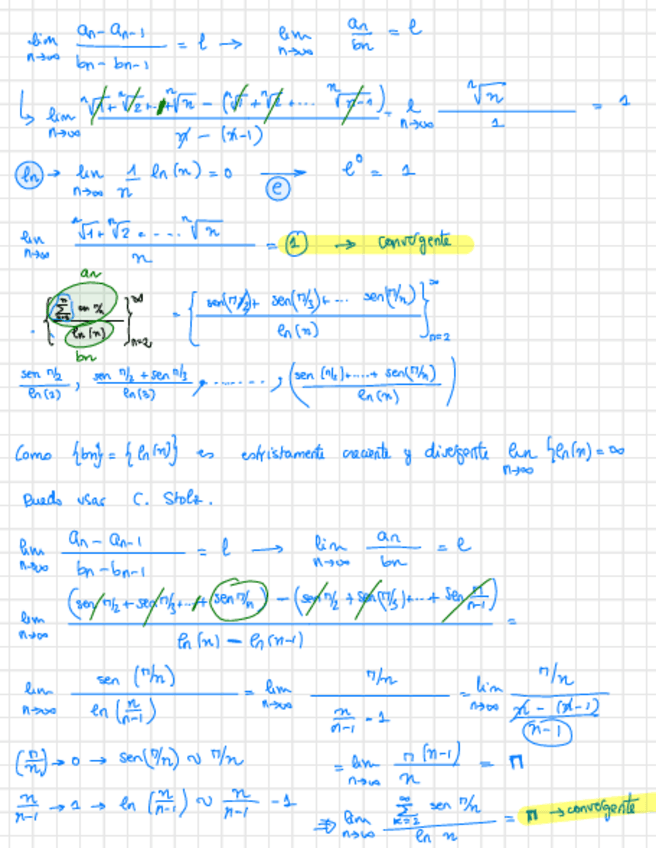 lim n→∞ (an - an-1)/(bn - bn-1) = l → lim n→∞ an/bn = l
↳ lim n→∞ (ⁿ√1 + ⁿ√2 + ... + ⁿ√n - (ⁿ√1 + ⁿ√2 + ... ⁿ√n-1))/(n - (n-1)) = l n→∞ ⁿ√n/1 = 1
ln → lim n→∞ 1/n ln(n) = 0 → e e⁰ = 1
lim n→∞ (ⁿ√1 + ⁿ√2 + .... ⁿ√n)/n = 1 → convergente
an
{ Σ sen π/k / ln(n) }∞ n=2 = { (sen(π/2) + sen(π/3) + ... sen(π/n))/ln(n) }∞ n=2
bn
sen π/2 / ln(2) , (sen π/2 + sen π/3)/ln(3) , ....... , ((sen(π/2) + .... + sen(π/n))/ln(n))
Como {bn} = {ln(n)} es estristamente creciente y divergente lim n→∞ {ln(n) = ∞
Puedo usar C. Stolz.
lim n→∞ (an - an-1)/(bn - bn-1) = l → lim n→∞ an/bn = l
lim n→∞ ((sen π/2 + sen π/3 + ... + sen π/n) - (sen π/2 + sen(π/3) + ... + sen π/n-1))/(ln(n) - ln(n-1)) =
lim n→∞ sen(π/n)/ln(n/n-1) = lim n→∞ (π/n)/(n/n-1 - 1) = lim n→∞ (π/n)/((n - (n-1))/(n-1))
(π/n) → 0 → sen(π/n) ∼ π/n = lim n→∞ π(n-1)/n = π
n/n-1 → 1 → ln(n/n-1) ∼ n/n-1 - 1 ⇒ lim n→∞ (Σ∞ k=2 sen π/n)/ln n = π → convergente